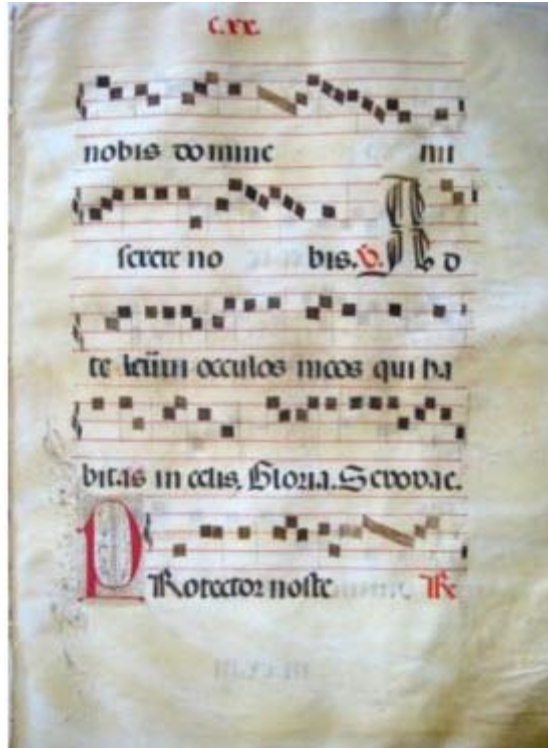 C.xx.
nobis domine mi
serere no bis. V. A d
te levavi occulos meos qui ha
bitas in celis. Gloria. Seuouae.
PRotector noste R